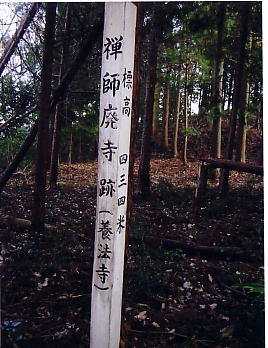 標高 四三四米
禅師廃寺跡(養法寺)